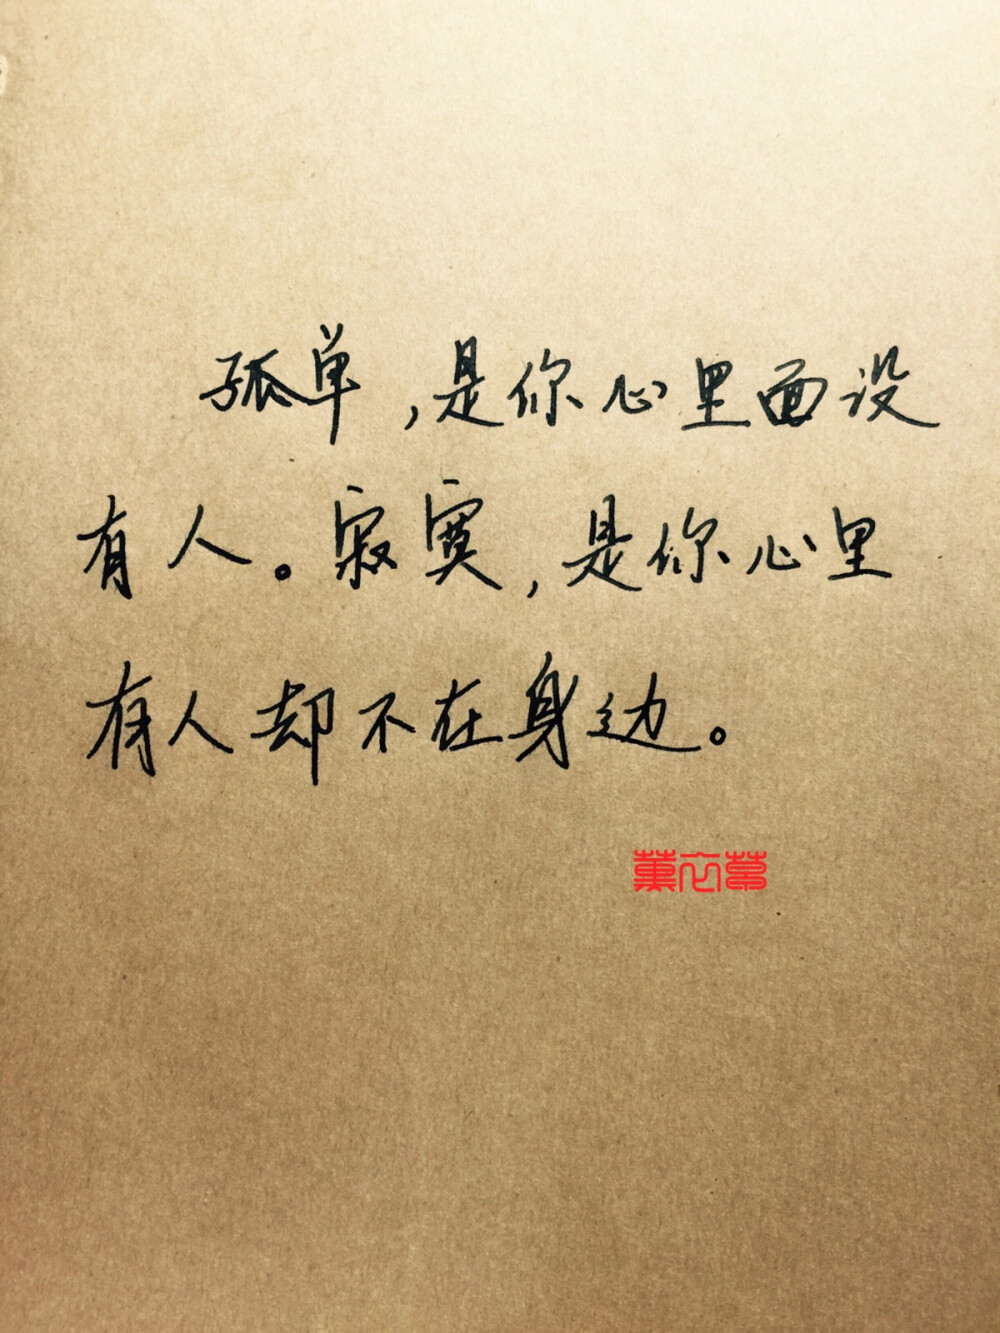 孤单，是你心里面没
有人。寂寞，是你心里
有人却不在身边。
薰衣草